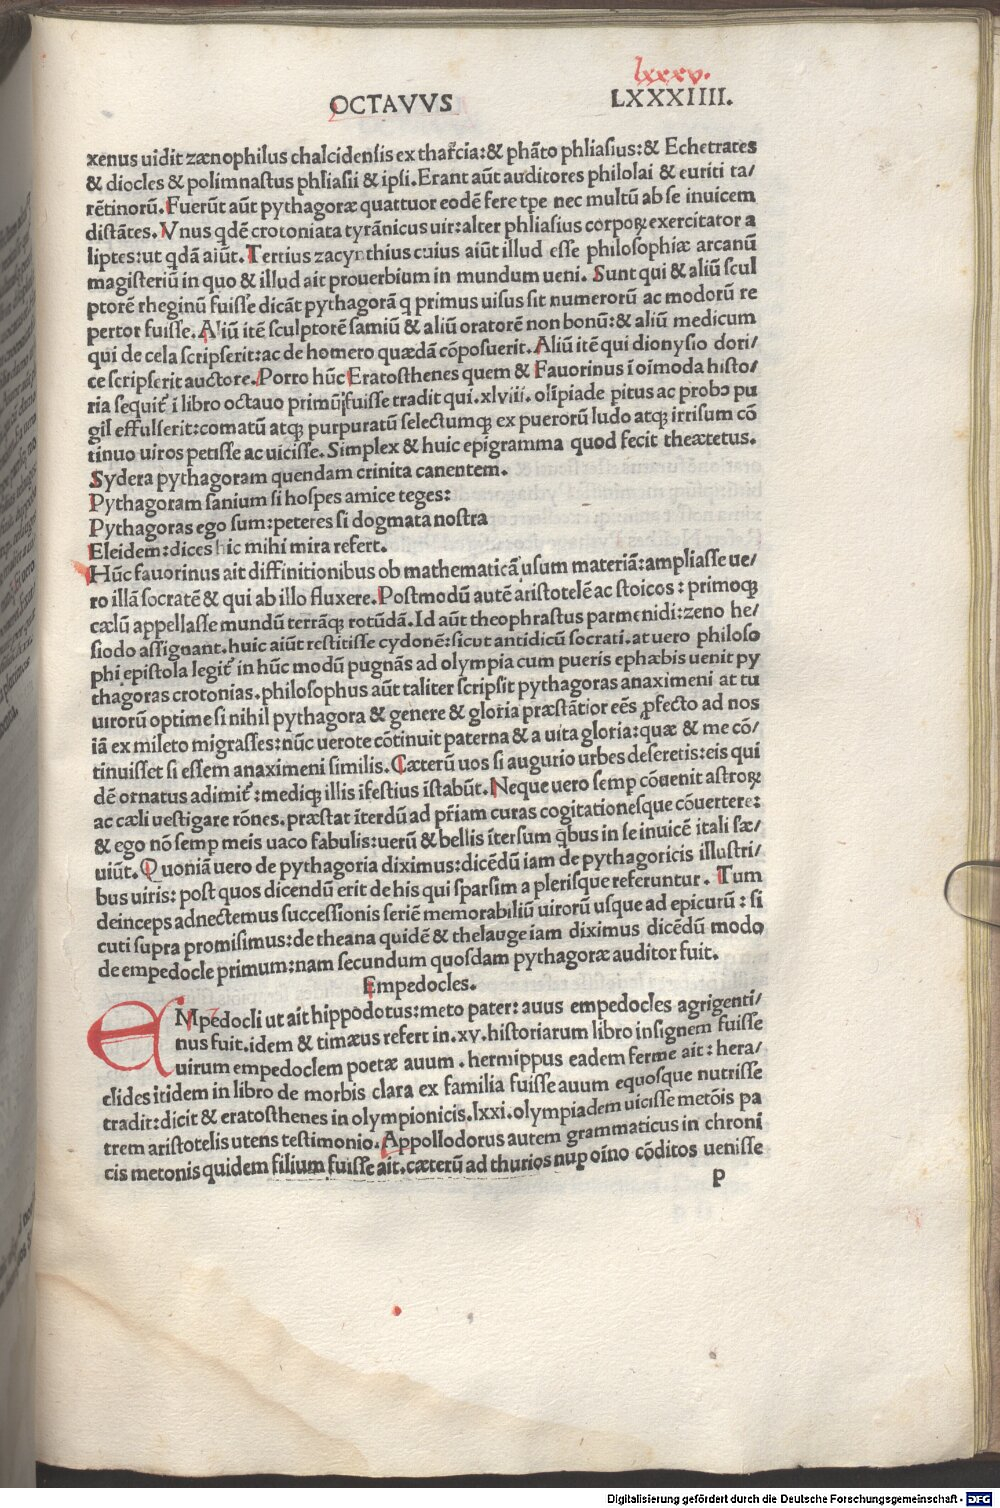 lxxxv.
OCTAVVS LXXXIIII.
xenus uidit zænophilus chalcidensis ex thar̄cia:& phāto phliasius:& Echetrates
& diocles & polimnastus phliasii & ipsi. Erant aūt auditores philolai & euriti ta/
rētinorū. Fuerūt aūt pythagoræ quattuor eodē fere tpe nec multū ab se inuicem
distātes. Vnus qdē crotoniata tyrānicus uir:alter phliasius corporꝝ exercitator a
liptes:ut qdā aiūt. Tertius zacynthius cuius aiūt illud esse philosophiæ arcanū
magisteriū in quo & illud ait prouerbium in mundum ueni. Sunt qui & aliū scul
ptorē rheginū fuisse dicāt pythagorā q primus uisus sit numerorū ac modorū re
pertor fuisse. Aliū itē sculptorē samiū & aliū oratorē non bonū:& aliū medicum
qui de cela scripserit:ac de homero quædā cōposuerit. Aliū itē qui dionysio dori/
ce scripserit auctore. Porro hūc Eratosthenes quem & Fauorinus ī oīmoda histo/
ria sequit̄ ī libro octauo primū fuisse tradit qui.xlviii. olīpiade pitus ac probɔ pu
gil effulserit:comatū atqȝ purpuratū selectumqȝ ex puerorū ludo atqȝ irrisum cō
tinuo uiros petisse ac uicisse. Simplex & huic epigramma quod fecit theætetus.
Sydera pythagoram quendam crinita canentem.
Pythagoram sanium si hospes amice teges:
Pythagoras ego sum:peteres si dogmata nostra
Eleidem:dices hic mihi mira refert.
Hūc fauorinus ait diffinitionibus ob mathematicā usum materiā:ampliasse ue/
ro illā socratē & qui ab illo fluxere. Postmodū autē aristotelē ac stoicos: primoqȝ
cælū appellasse mundū terrāqȝ rotūdā. Id aūt theophrastus parmenidi:zeno he/
siodo assignant.huic aiūt restitisse cydonē:sicut antidicū socrati.at uero philoso
phi epistola legit̄ in hūc modū pugnās ad olympia cum pueris ephæbis uenit py
thagoras crotonias.philosophus aūt taliter scripsit pythagoras anaximeni at tu
uirorū optime si nihil pythagora & genere & gloria præstātior eēs ꝓfecto ad nos
iā ex mileto migrasses:nūc uerote cōtinuit paterna & a uita gloria:quæ & me cō/
tinuisset si essem anaximeni similis. Cæterū uos si augurio urbes deseretis:eis qui
dē ornatus adimit̄:mediqȝ illis īfestius īstabūt. Neque uero semp cōuenit astrorꝝ
ac cæli uestigare rōnes.præstat īterdū ad pr̄iam curas cogitationesque cōuertere:
& ego nō semp meis uaco fabulis:uerū & bellis ītersum qbus in se inuicē itali sæ/
uiūt. Quoniā uero de pythagoria diximus:dicēdū iam de pythagoricis illustri/
bus uiris: post quos dicendū erit de his qui sparsim a plerisque referuntur. Tum
deinceps adnectemus successionis seriē memorabiliū uirorū usque ad epicurū: si
cuti supra promisimus:de theana quidē & thelauge iam diximus dicēdū modo
de empedocle primum:nam secundum quosdam pythagoræ auditor fuit.
Empedocles.
EMpedocli ut ait hippodotus:meto pater: auus empedocles agrigenti/
nus fuit.idem & timæus refert in.xv.historiarum libro insignem fuisse
uirum empedoclem poetæ auum. hermippus eadem ferme ait: hera/
clides itidem in libro de morbis clara ex familia fuisse auum equosque nutrisse
tradit:dicit & eratosthenes in olympionicis.lxxi.olympiadem uicisse metōis pa
trem aristotelis utens testimonio. Appollodorus autem grammaticus in chroni
cis metonis quidem filium fuisse ait.cæterū ad thurios nup oīno cōditos uenisse
p
Digitalisierung gefördert durch die Deutsche Forschungsgemeinschaft - DFG